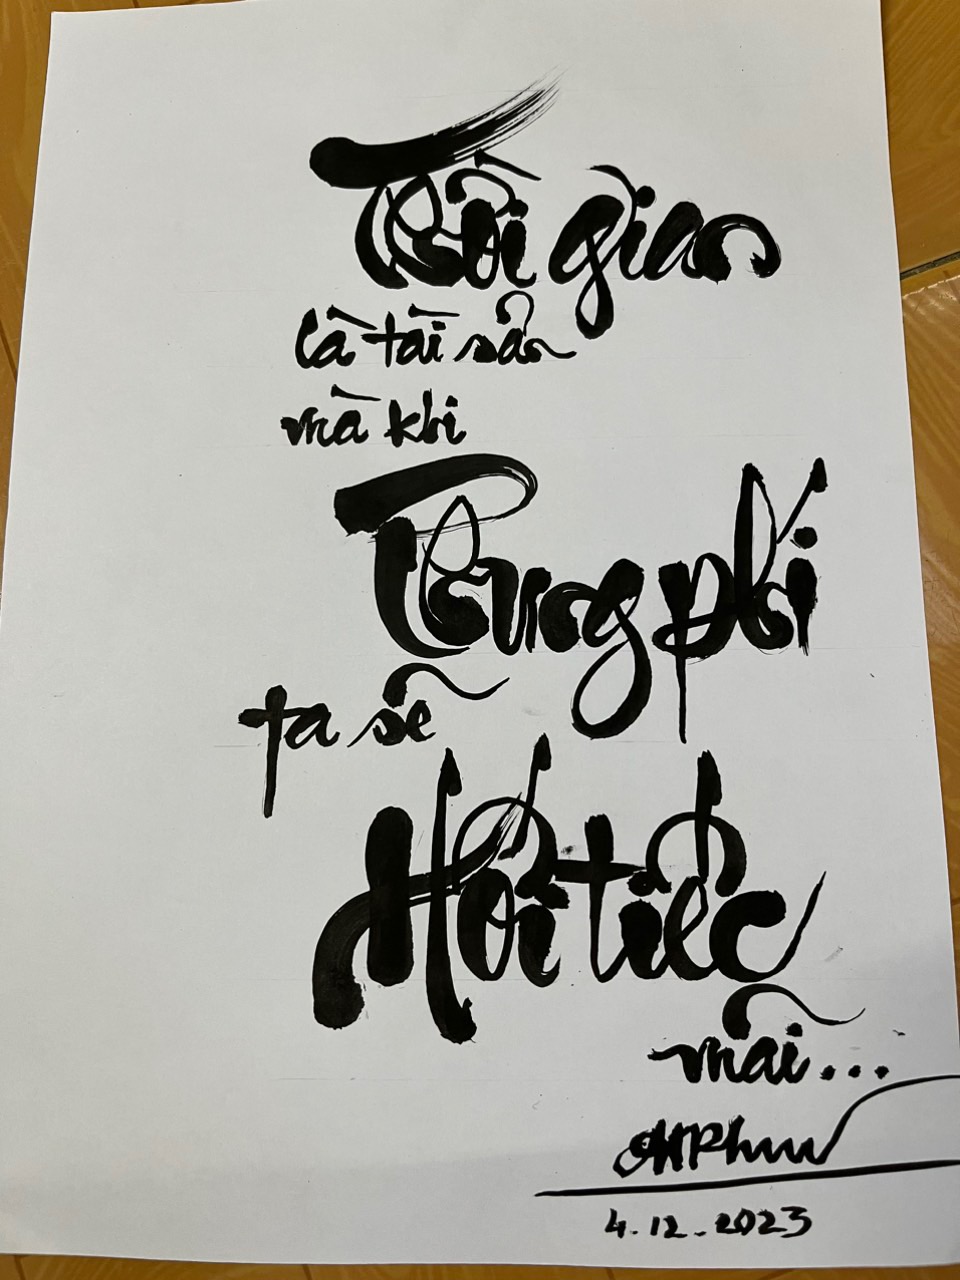 Thời gian
là tài sản
mà khi
Phung phí
ta sẽ
Hối tiếc
mãi...
4.12.2023